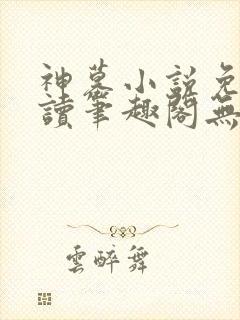 神墓小説免
讀筆趣閣無
雲醉舞